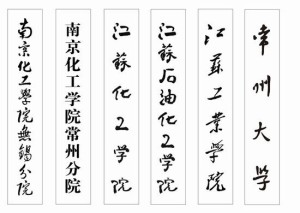 南京化工學院無錫分院
南京化工学院常州分院
江蘇化工学院
江蘇石油化工学院
江蘇工業学院
常州大学